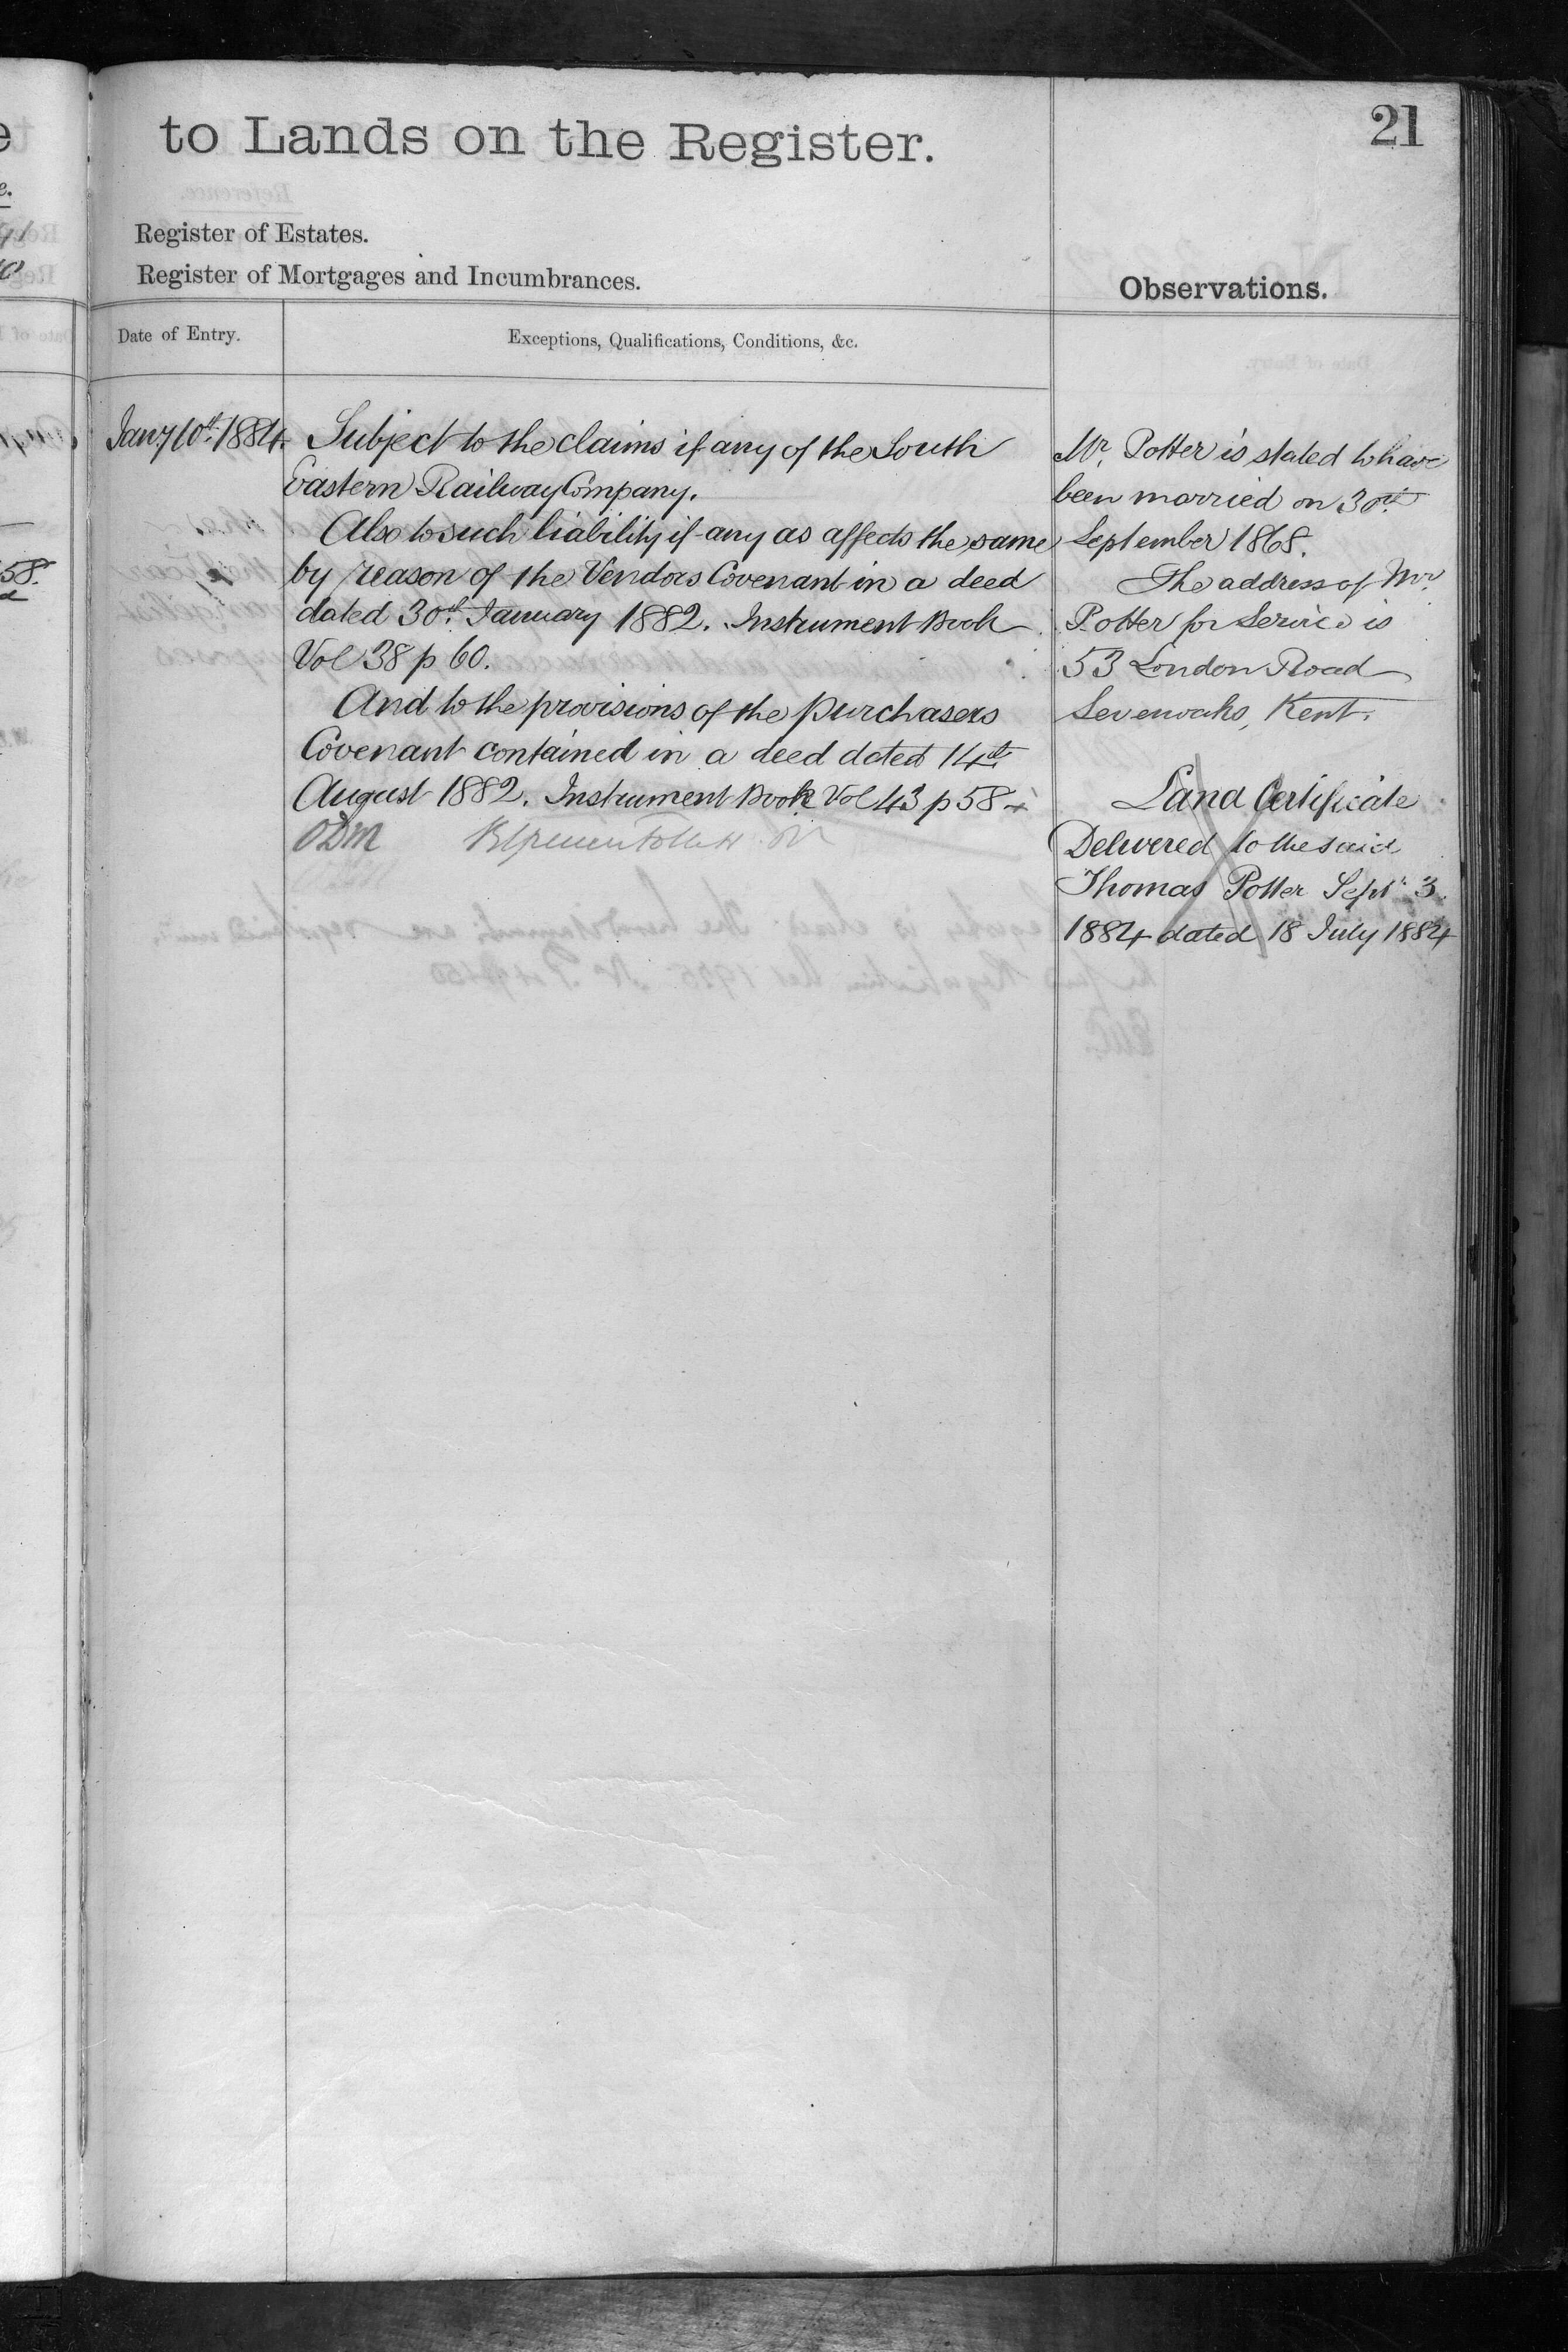 to Lands on the Register.
21
Register of Estates.
Register of Mortgages and Incumbrances.
Observations.
Date of Entry.
Exceptions, Qualifications, Conditions, &c.
Jany 10th 1884.
Subject to the claims if any of the South
Eastern Railway Company.
Also to such liability if any as affects the same
by reason of the Vendors Covenant in a deed
dated 30th January 1882. Instrument Book
Vol 38 p 60.
And to the provisions of the purchasers
Covenant contained in a deed dated 14th
August 1882. Instrument Book Vol 43 p 58
ODM
Mr. Potter is stated to have
been married on 30th
September 1868.
The address of Mr
Potter for Service is
53 London Road
Sevenoaks, Kent.
Land Certificate
Delivered to the said
Thomas Potter Septr 3.
1884 dated 18 July 1884
58.